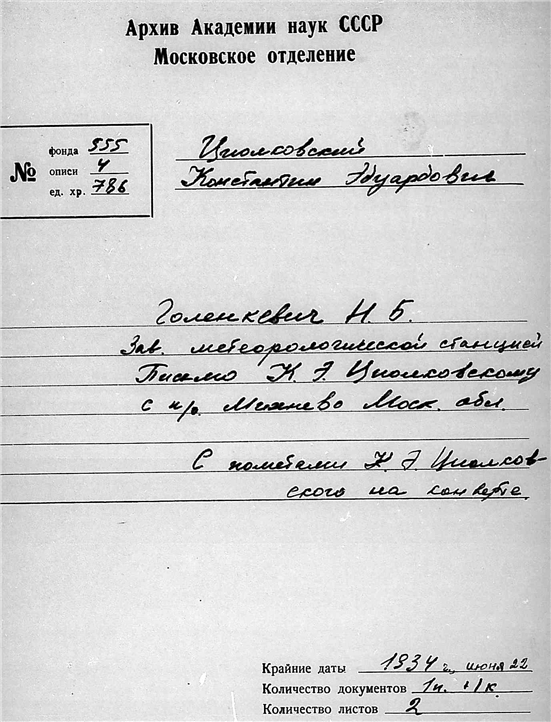 Архив Академии наук СССР
Московское отделение
№
фонда 555
описи 4
ед. хр. 786
Циолковский
Константин Эдуардович
Голенкевич Н. Б.
Зав. метеорологической станцией
Письмо К. Э. Циолковскому
с пр. Михнево Моск. обл.
С пометами К. Э Циолков-
ского на конверте.
Крайние даты 1934 г, июня 22
Количество документов 1п. +1к.
Количество листов 2